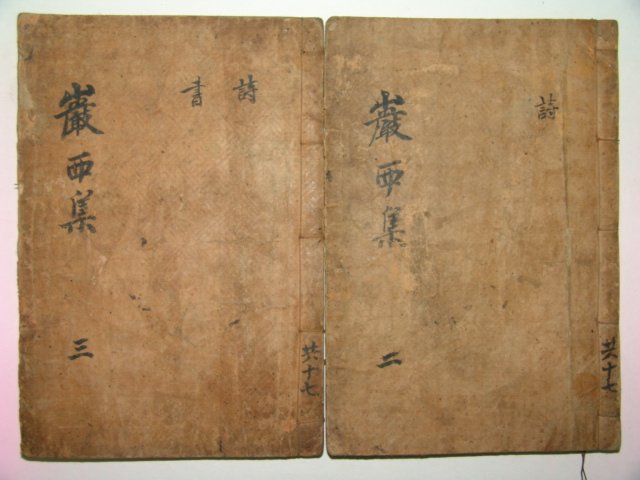 詩
共十七
巖西集
二
詩
書
共十七
巖西集
三